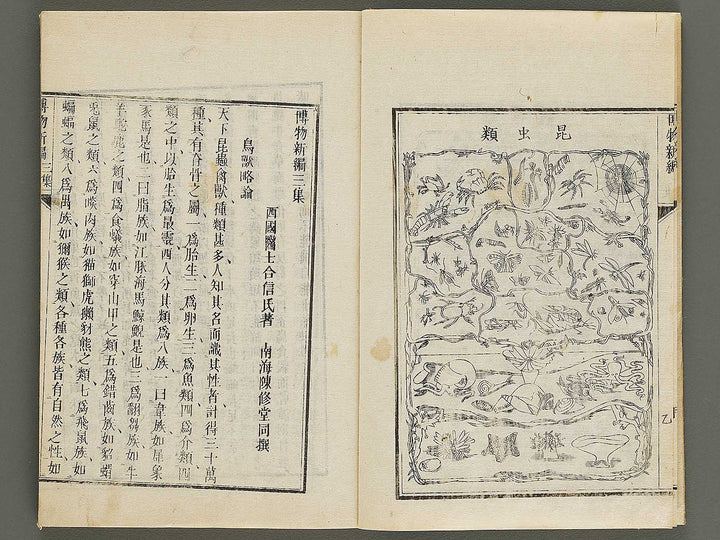 昆虫類
博物新編
乙
博物新編三集
鳥獸略論
西國醫士合信氏著 南海陳修堂同撰
天下昆蟲禽獸種類甚多人知其名而識其性者計得三十萬
種其有脊骨之屬一爲胎生二爲卵生三爲魚類四爲介類四
類之中以胎生爲最靈西人分其類爲八族一曰韋族如犀象
豕馬是也二曰脂族如江豚海馬鯨鯢是也三爲翻芻族如牛
羊駝鹿之類四爲食蟻族如穿山甲之類五爲錯齒族如貂蝟
兎鼠之類六爲啖肉族如猫獅虎獺豺熊之類七爲飛鼠族如
蝙蝠之類八爲禺族如獼猴之類各種各族皆有自然之性如
博物新編三集